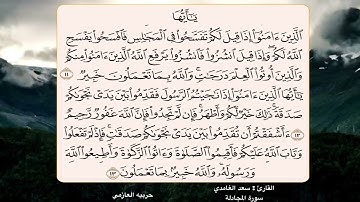 يَـٰٓأَيُّهَا
ٱلَّذِينَ ءَامَنُوٓا۟ إِذَا قِيلَ لَكُمْ تَفَسَّحُوا۟ فِى ٱلْمَجَـٰلِسِ فَٱفْسَحُوا۟ يَفْسَحِ
ٱللَّهُ لَكُمْ ۖ وَإِذَا قِيلَ ٱنشُزُوا۟ فَٱنشُزُوا۟ يَرْفَعِ ٱللَّهُ ٱلَّذِينَ ءَامَنُوا۟ مِنكُمْ
وَٱلَّذِينَ أُوتُوا۟ ٱلْعِلْمَ دَرَجَـٰتٍ ۚ وَٱللَّهُ بِمَا تَعْمَلُونَ خَبِيرٌ ١١
يَـٰٓأَيُّهَا ٱلَّذِينَ ءَامَنُوٓا۟ إِذَا نَـٰجَيْتُمُ ٱلرَّسُولَ فَقَدِّمُوا۟ بَيْنَ يَدَىْ نَجْوَىٰكُمْ
صَدَقَةً ۚ ذَٰلِكَ خَيْرٌ لَّكُمْ وَأَطْهَرُ ۚ فَإِن لَّمْ تَجِدُوا۟ فَإِنَّ ٱللَّهَ غَفُورٌ رَّحِيمٌ
١٢ ءَأَشْفَقْتُمْ أَن تُقَدِّمُوا۟ بَيْنَ يَدَىْ نَجْوَىٰكُمْ صَدَقَـٰتٍ ۚ فَإِذْ لَمْ تَفْعَلُوا۟
وَتَابَ ٱللَّهُ عَلَيْكُمْ فَأَقِيمُوا۟ ٱلصَّلَوٰةَ وَءَاتُوا۟ ٱلزَّكَوٰةَ وَأَطِيعُوا۟ ٱللَّهَ
وَرَسُولَهُۥ ۚ وَٱللَّهُ خَبِيرٌۢ بِمَا تَعْمَلُونَ ١٣
القارئ : سعد الغامدي
سورة المجادلة
حربيه العازمي